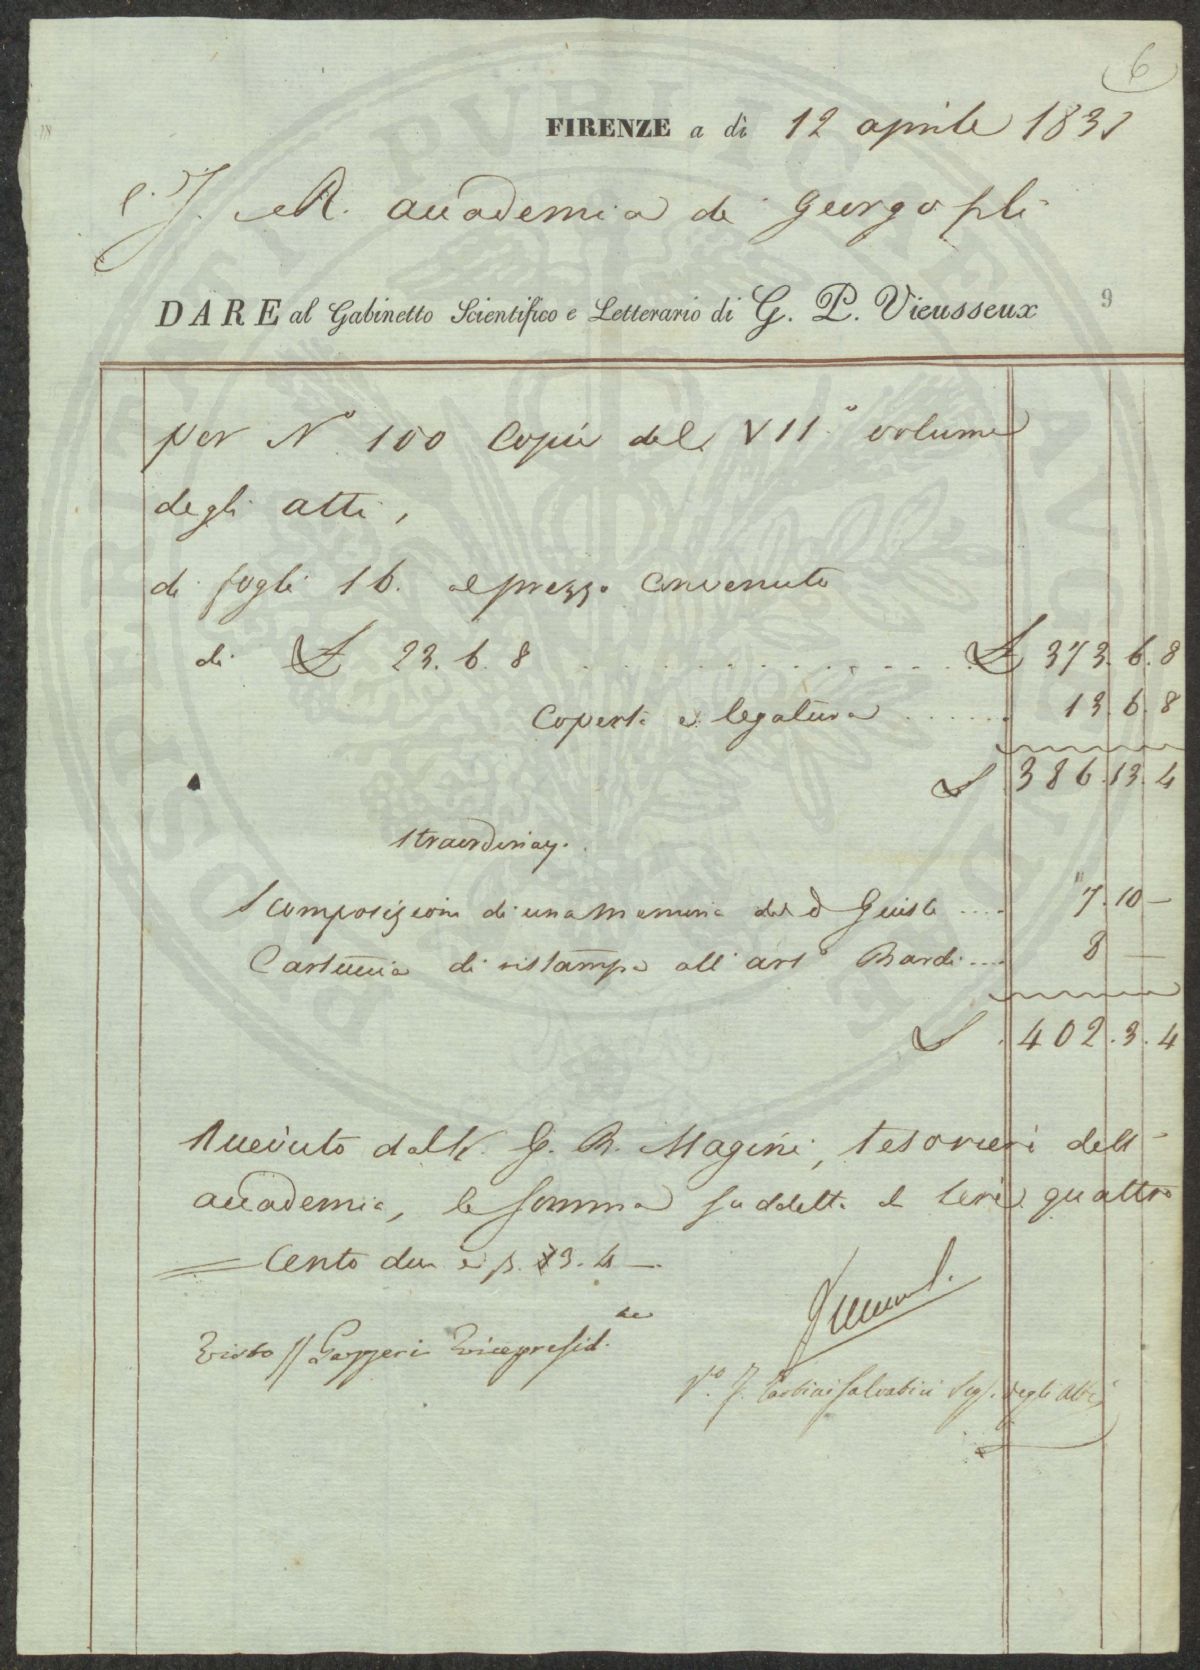 6
FIRENZE a dì 12 aprile 183
I. e R. accademia de Georgofili
DARE al Gabinetto Scientifico e Letterario di G. P. Vieusseux 9
per N° 100 Copie del VII° volume
degli atti,
di fogli 16. al prezzo convenuto
di £ 23. 6. 8 . . . . . . . £ 373. 6. 8
Coperta e legatura . . . . . . 13. 6. 8
£ 386. 13. 4
straordinay.
Scomposizione di una memoria del D Giusti .... " 7. 10 —
di ristampa all' art° Bardi .... 8 —
£ . 402. 3. 4
Ricevuto dal G. B. Magini, tesoriere dell'
accademia, la somma suddetta di lire quattro
= Cento due e 3. 4 —
Visto // Gazzeri Vicepresid.te
V.° Segr. degli Atti
POSTERITATI PVBLICAE